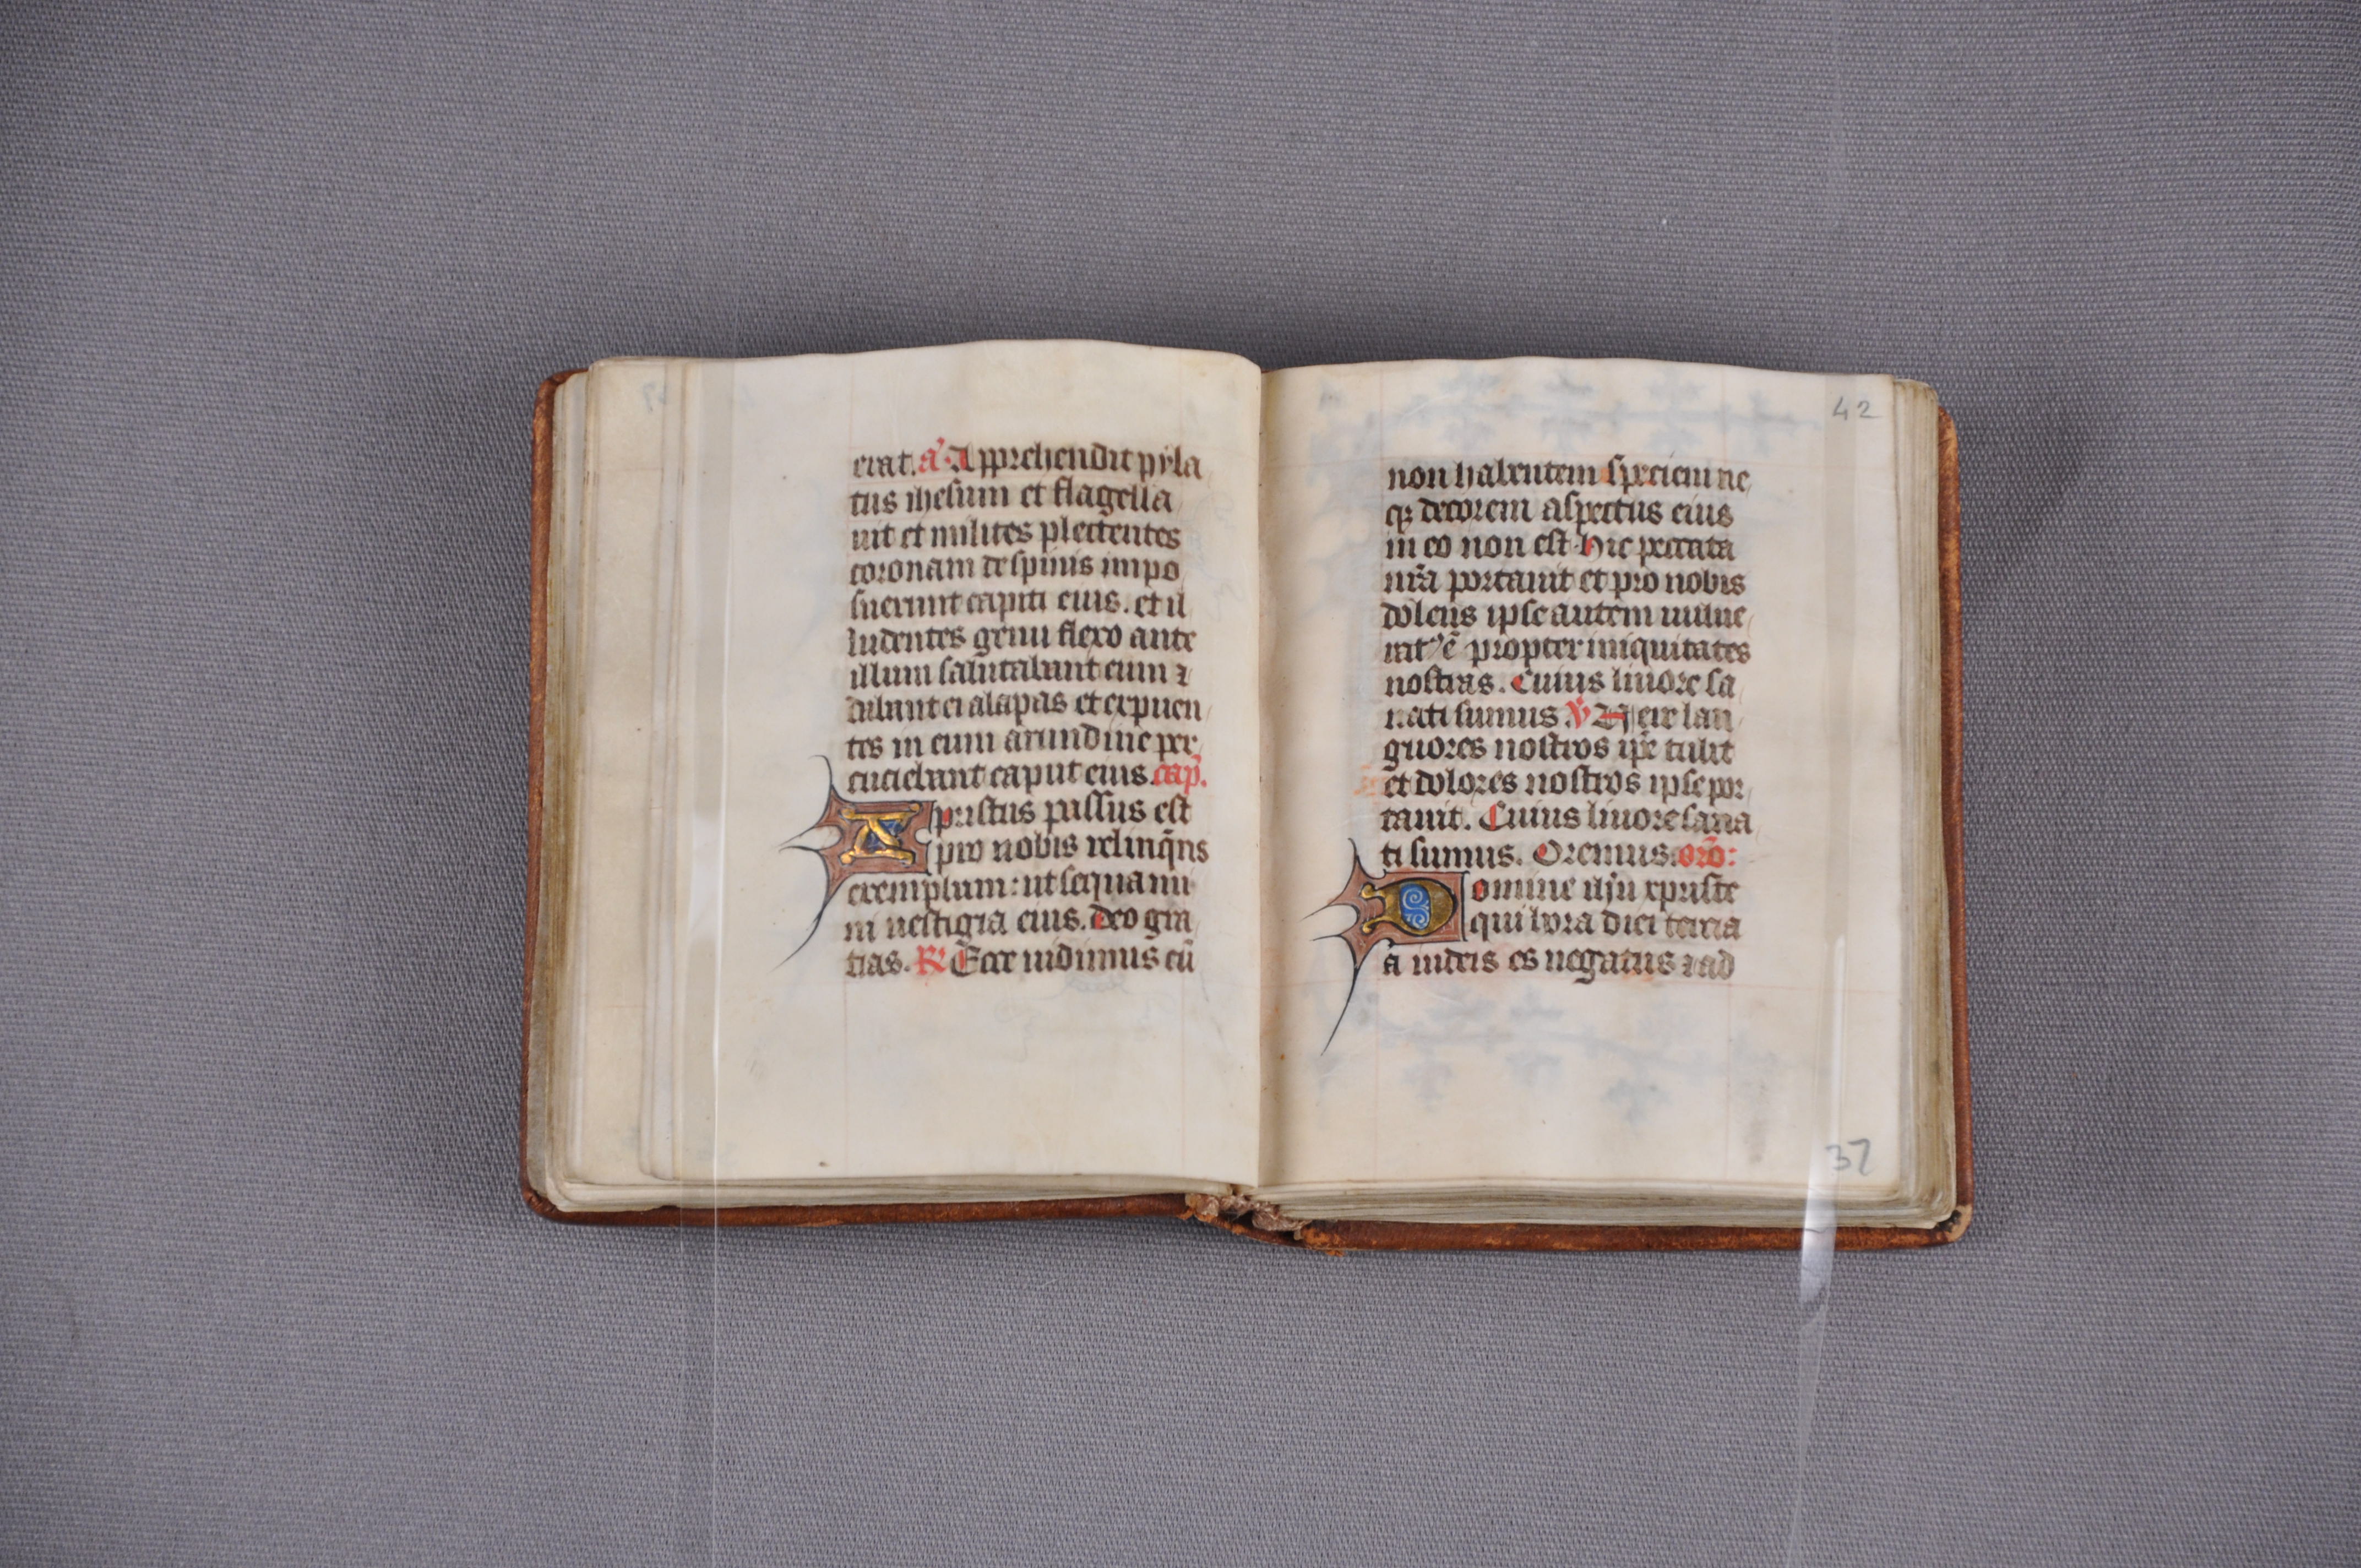 erat. a᷑. Apprehendit pyla
tus ihesum et flagella
uit et milites plectentes
coronam de spinis impo
suerunt capiti eius. et il
ludentes genu flexo ante
illum salutabant eum ⁊
dabant ei alapas et expuen
tes in eum arundine per
cuciebant caput eius. cap̄.
Xpristus passus est
pro nobis relinq̄ns
exemplum: ut sequami
ni uestigia eius. Deo gra
tias. R᷑ Ecce uidimus eū
42
non habentem speciem ne
qꝫ decorem aspectus eius
in eo non est hic peccata
nr̄a portauit et pro nobis
dolens ipse autem uulne
rat᷒ ē propter iniquitates
nostras. Cuius liuore sa
nati sumus. V᷑ Uere lan
guores nostros ip̄e tulit
et dolores nostros ipse por
tauit. Cuius liuore sana
ti sumus. Oremus. orō:
Domine ihū xpriste
qui hora diei tercia
a iudeis es negatus ⁊ ad
37